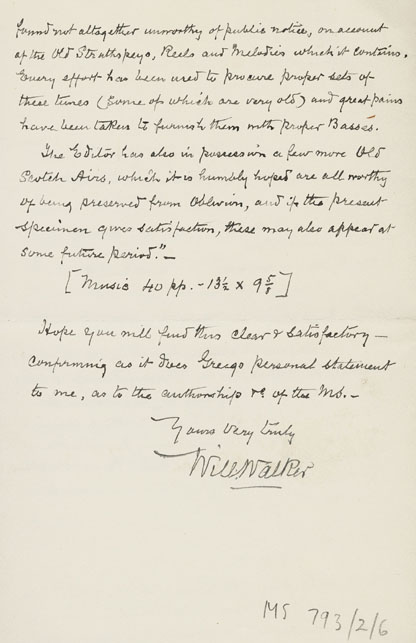 found not altogether unworthy of public notice, on account
of the Old Strathspeys, Reels and Melodies which it contains.
Every effort has been used to procure proper sets of
these tunes (some of which are very old) and great pains
have been taken to furnish them with proper Basses.
The Editor has also in possession a few more Old
Scotch Airs, which it is humbly hoped are all worthy
of being preserved from Oblivion, and if the present
specimen gives satisfaction, these may also appear at
some future period."—
[Music 40 pp. - 13½ x 9⅝]
Hope you will find this clear & satisfactory —
confirming as it does Greigo personal statement
to me, as to the authorship &c of the MS. —
Yours very truly
Will Walker
MS 793/2/6